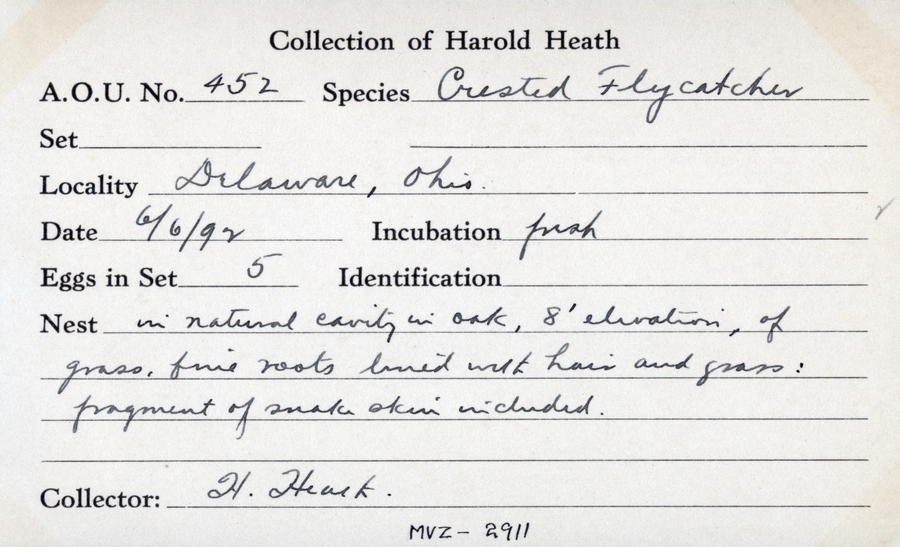 Collection of Harold Heath
A.O.U. No. 452 Species Crested Flycatcher
Set
Locality Delaware, Ohio.
Date 6/6/92 Incubation fresh
Eggs in Set 5 Identification
Nest in natural cavity in oak, 8' elevation, of
grass, fine roots lined with hair and grass:
fragment of snake skin included.
Collector: H. Heath.
MVZ- 2911